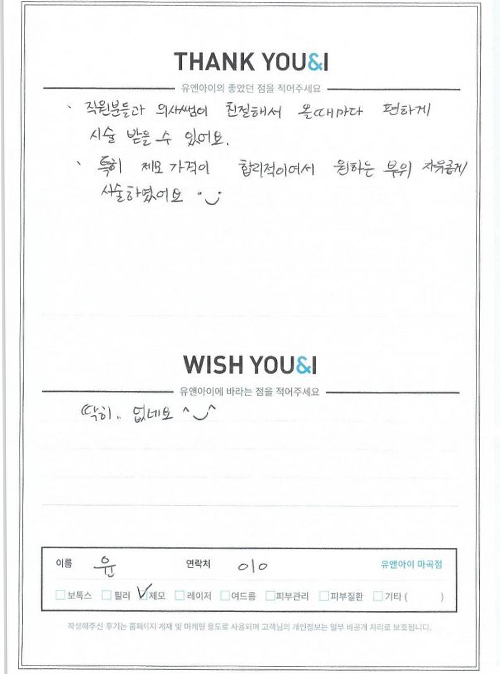 THANK YOU&I
유앤아이의 좋았던 점을 적어주세요
· 직원분들과 의사쌤이 친절해서 올때마다 편하게
시술 받을 수 있어요.
· 특히 제모 가격이 합리적이여서 원하는 부위 자유롭게
시술하였어요 ·‿·
WISH YOU&I
유앤아이에 바라는 점을 적어주세요
딱히.. 없네요 ^‿^
이름 윤 연락처 010 유앤아이 마곡점
□보톡스 □필러 ☑제모 □레이저 □여드름 □피부관리 □피부질환 □기타 ( )
작성해주신 후기는 홈페이지 게재 및 마케팅 용도로 사용되며 고객님의 개인정보는 일부 비공개 처리로 보호됩니다.